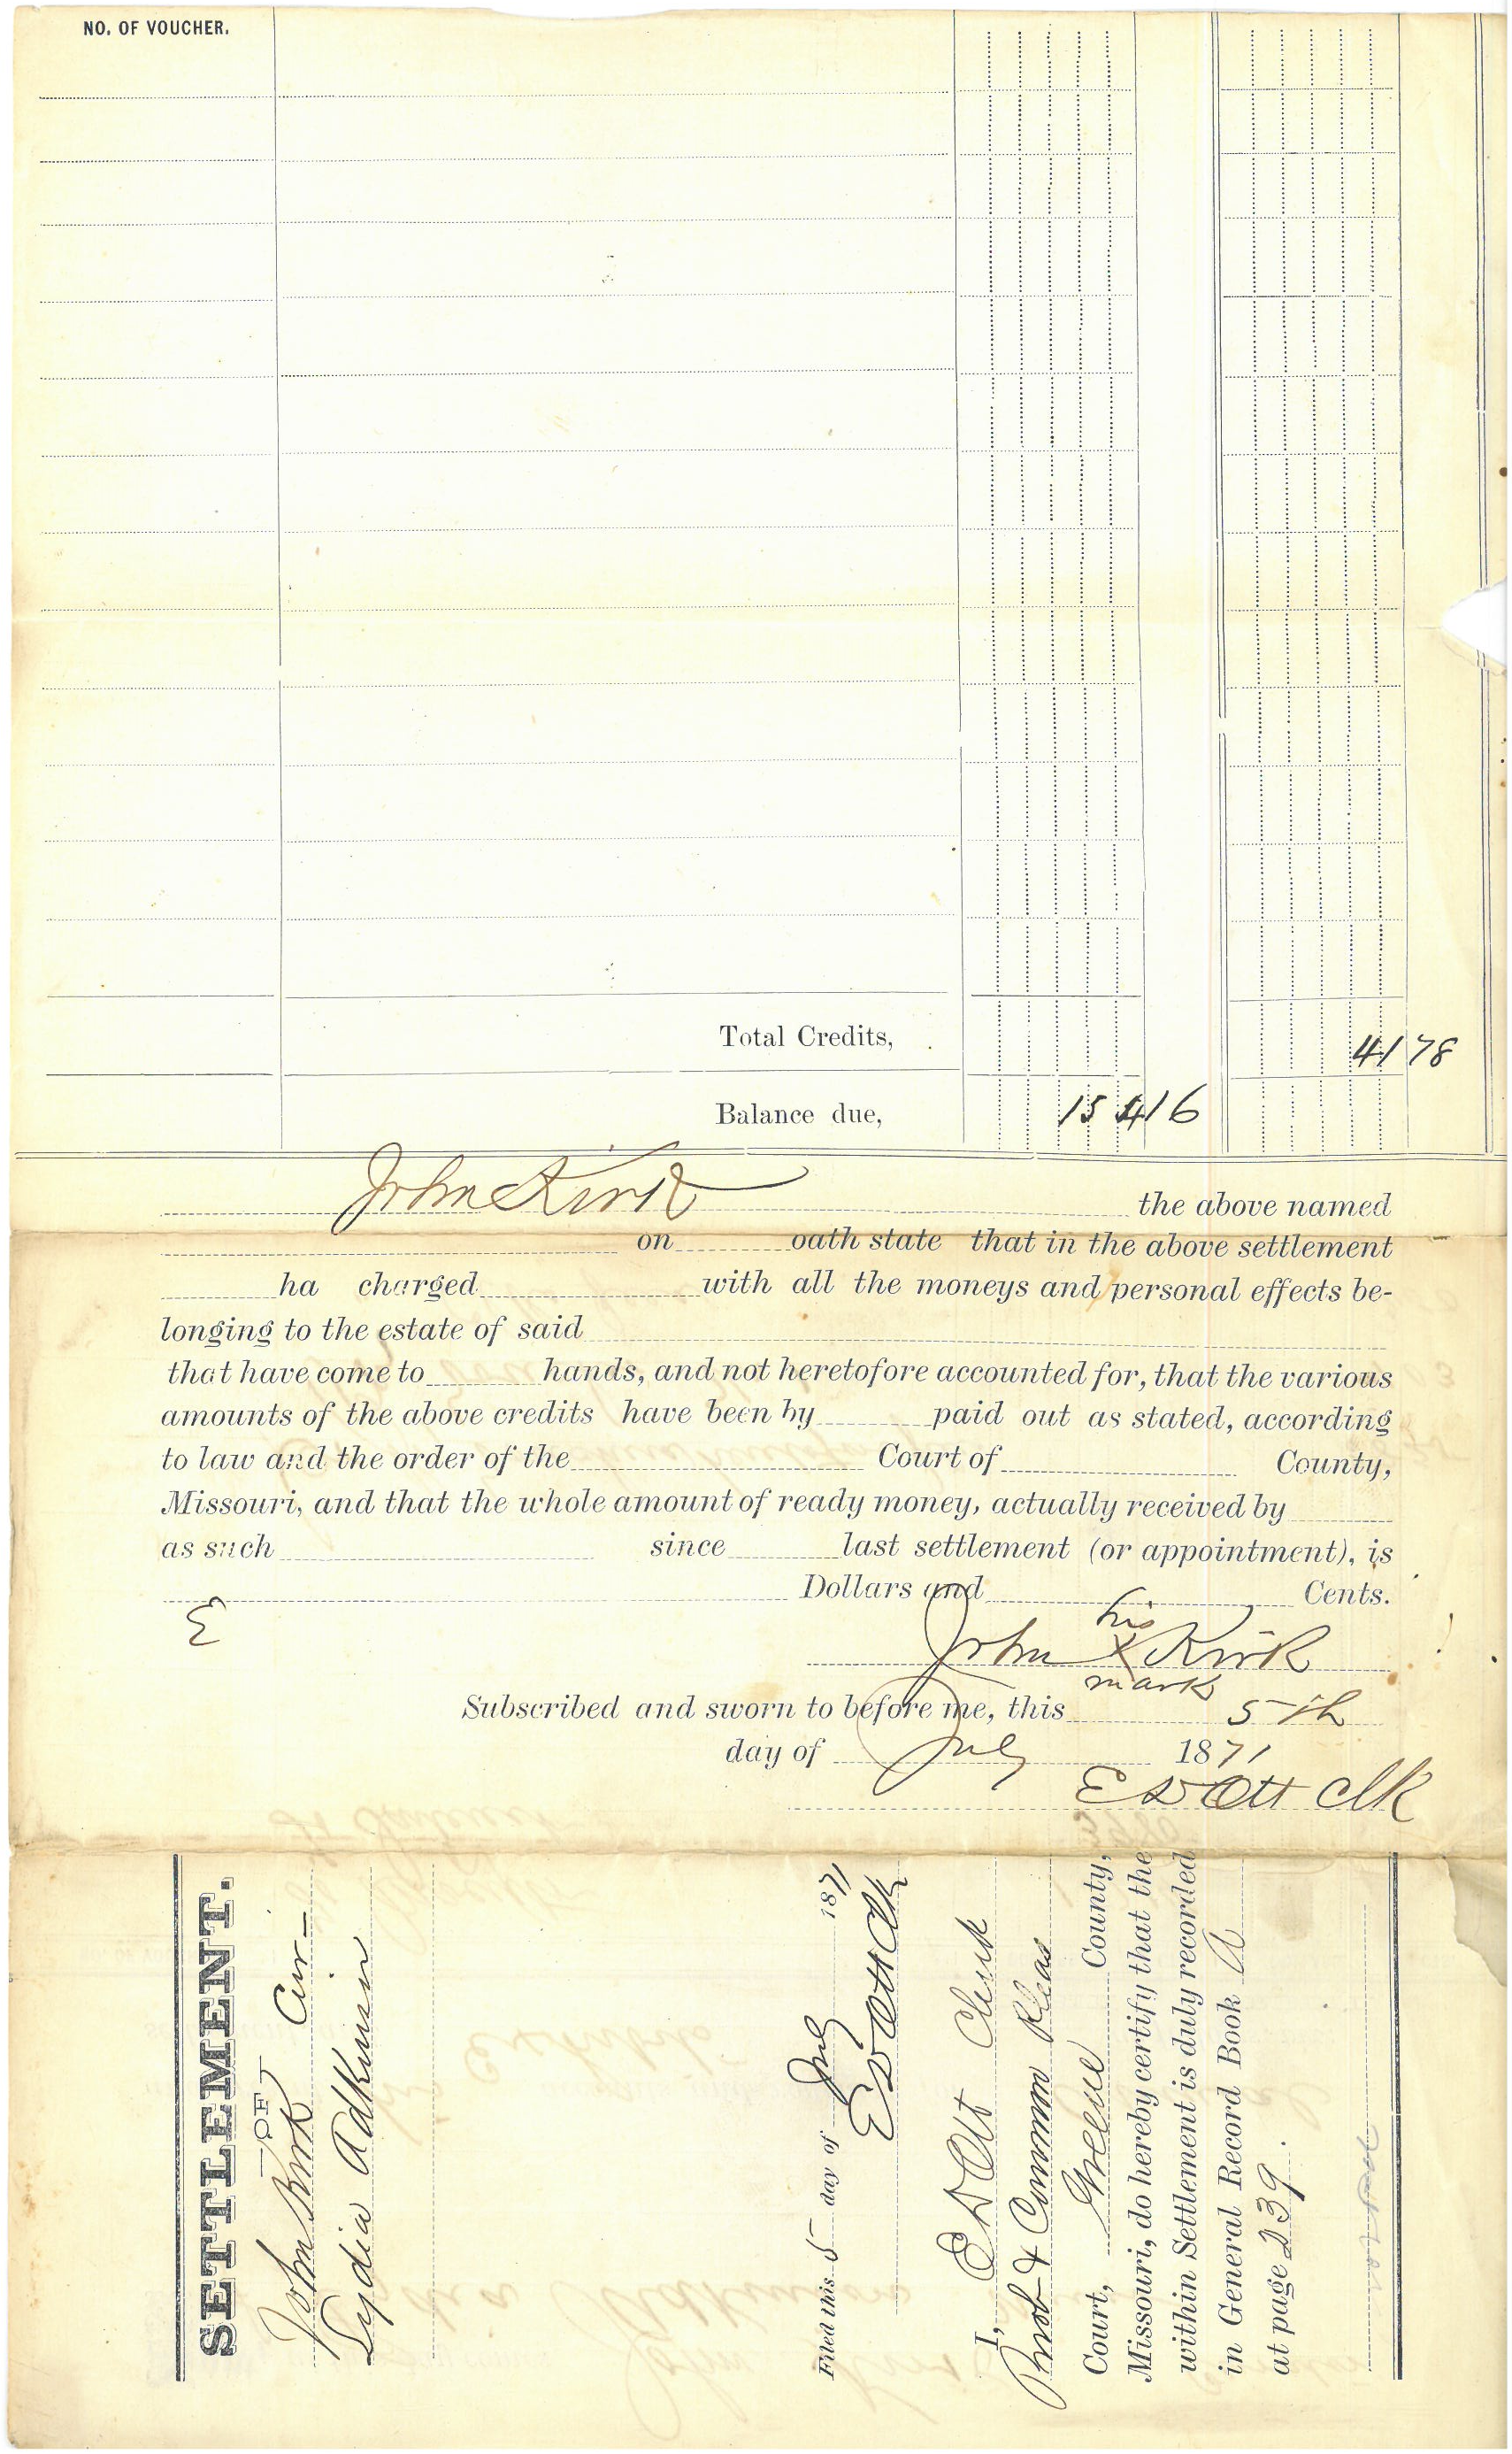 NO. OF VOUCHER.
Total Credits, 41 78
Balance due, 154 16
John Kirk the above named
on oath state that in the above settlement
ha charged with all the moneys and personal effects be-
longing to the estate of said
that have come to hands, and not heretofore accounted for, that the various
amounts of the above credits have been by paid out as stated, according
to law and the order of the Court of County,
Missouri, and that the whole amount of ready money, actually received by
as such since last settlement (or appointment), is
Dollars and Cents.
his
John X Kirk
mark
Subscribed and sworn to before me, this 5th
day of July 1871
E D Ott Clk
SETTLEMENT.
OF
John Kirk Cur-
Lydia Adkinson
Filed this 5 day of July 1871
E D Ott Clk
I, E D Ott Clerk
Prob & Common Pleas
Court, Greene County,
Missouri, do hereby certify that the
within Settlement is duly recorded
in General Record Book A
at page 239.